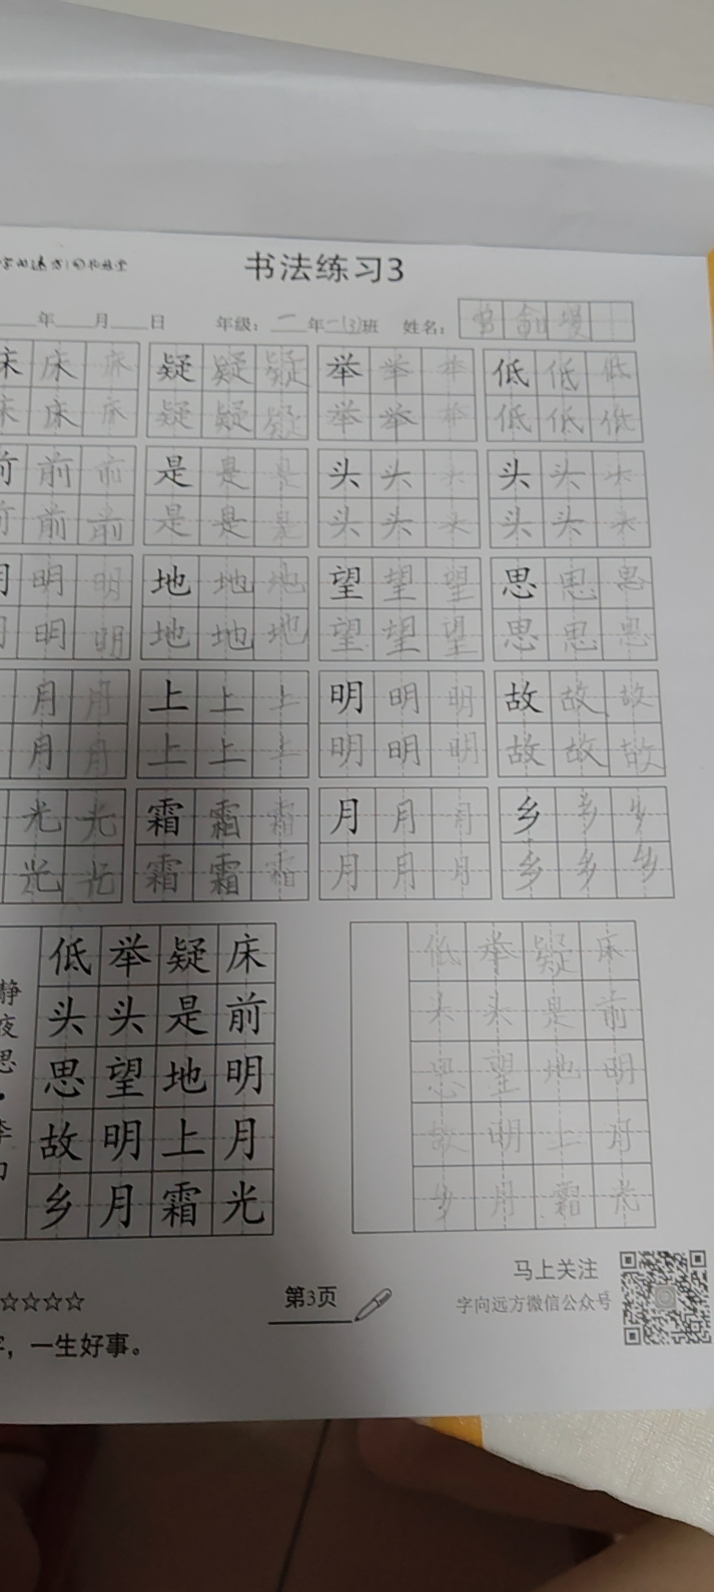 书法练习3
年 月 日 年级：一年一(3)班 姓名：
床床床 疑疑疑 举举举 低低低
床床床 疑疑疑 举举举 低低低
前前前 是是是 头头头 头头头
前前前 是是是 头头头 头头头
明明明 地地地 望望望 思思思
明明明 地地地 望望望 思思思
月月 上上上 明明明 故故故
月月 上上上 明明明 故故故
光光 霜霜霜 月月月 乡乡乡
光光 霜霜霜 月月月 乡乡乡
静夜思
低举疑床 低举疑床
头头是前 头头是前
思望地明 思望地明
故明上月 故明上月
乡月霜光 乡月霜光
马上关注
☆☆☆☆ 第3页 字向远方微信公众号
，一生好事。